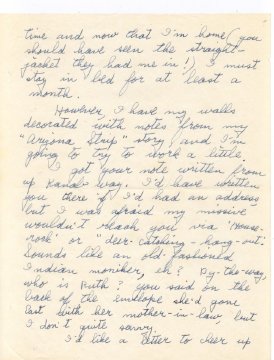 time and now that I'm home (you
should have seen the straight-
jacket they had me in!) I must
stay in bed for at least a
month.
However, I have my walls
decorated with notes from my
"Arizona Strip" story and I'm
going to try to work a little.
I got your note written from
up Kanab way. I'd have written
you there if I'd had an address
but I was afraid my missive
wouldn't reach you via "House-
rock" or "deer-catching-hang-out."
Sounds like an old-fashioned
Indian moniker, eh? By-the-way,
who is Ruth? you said on the
back of the envelope she'd gone
east with her mother-in-law, but
I don't quite savvy.
I'd like a letter to cheer up